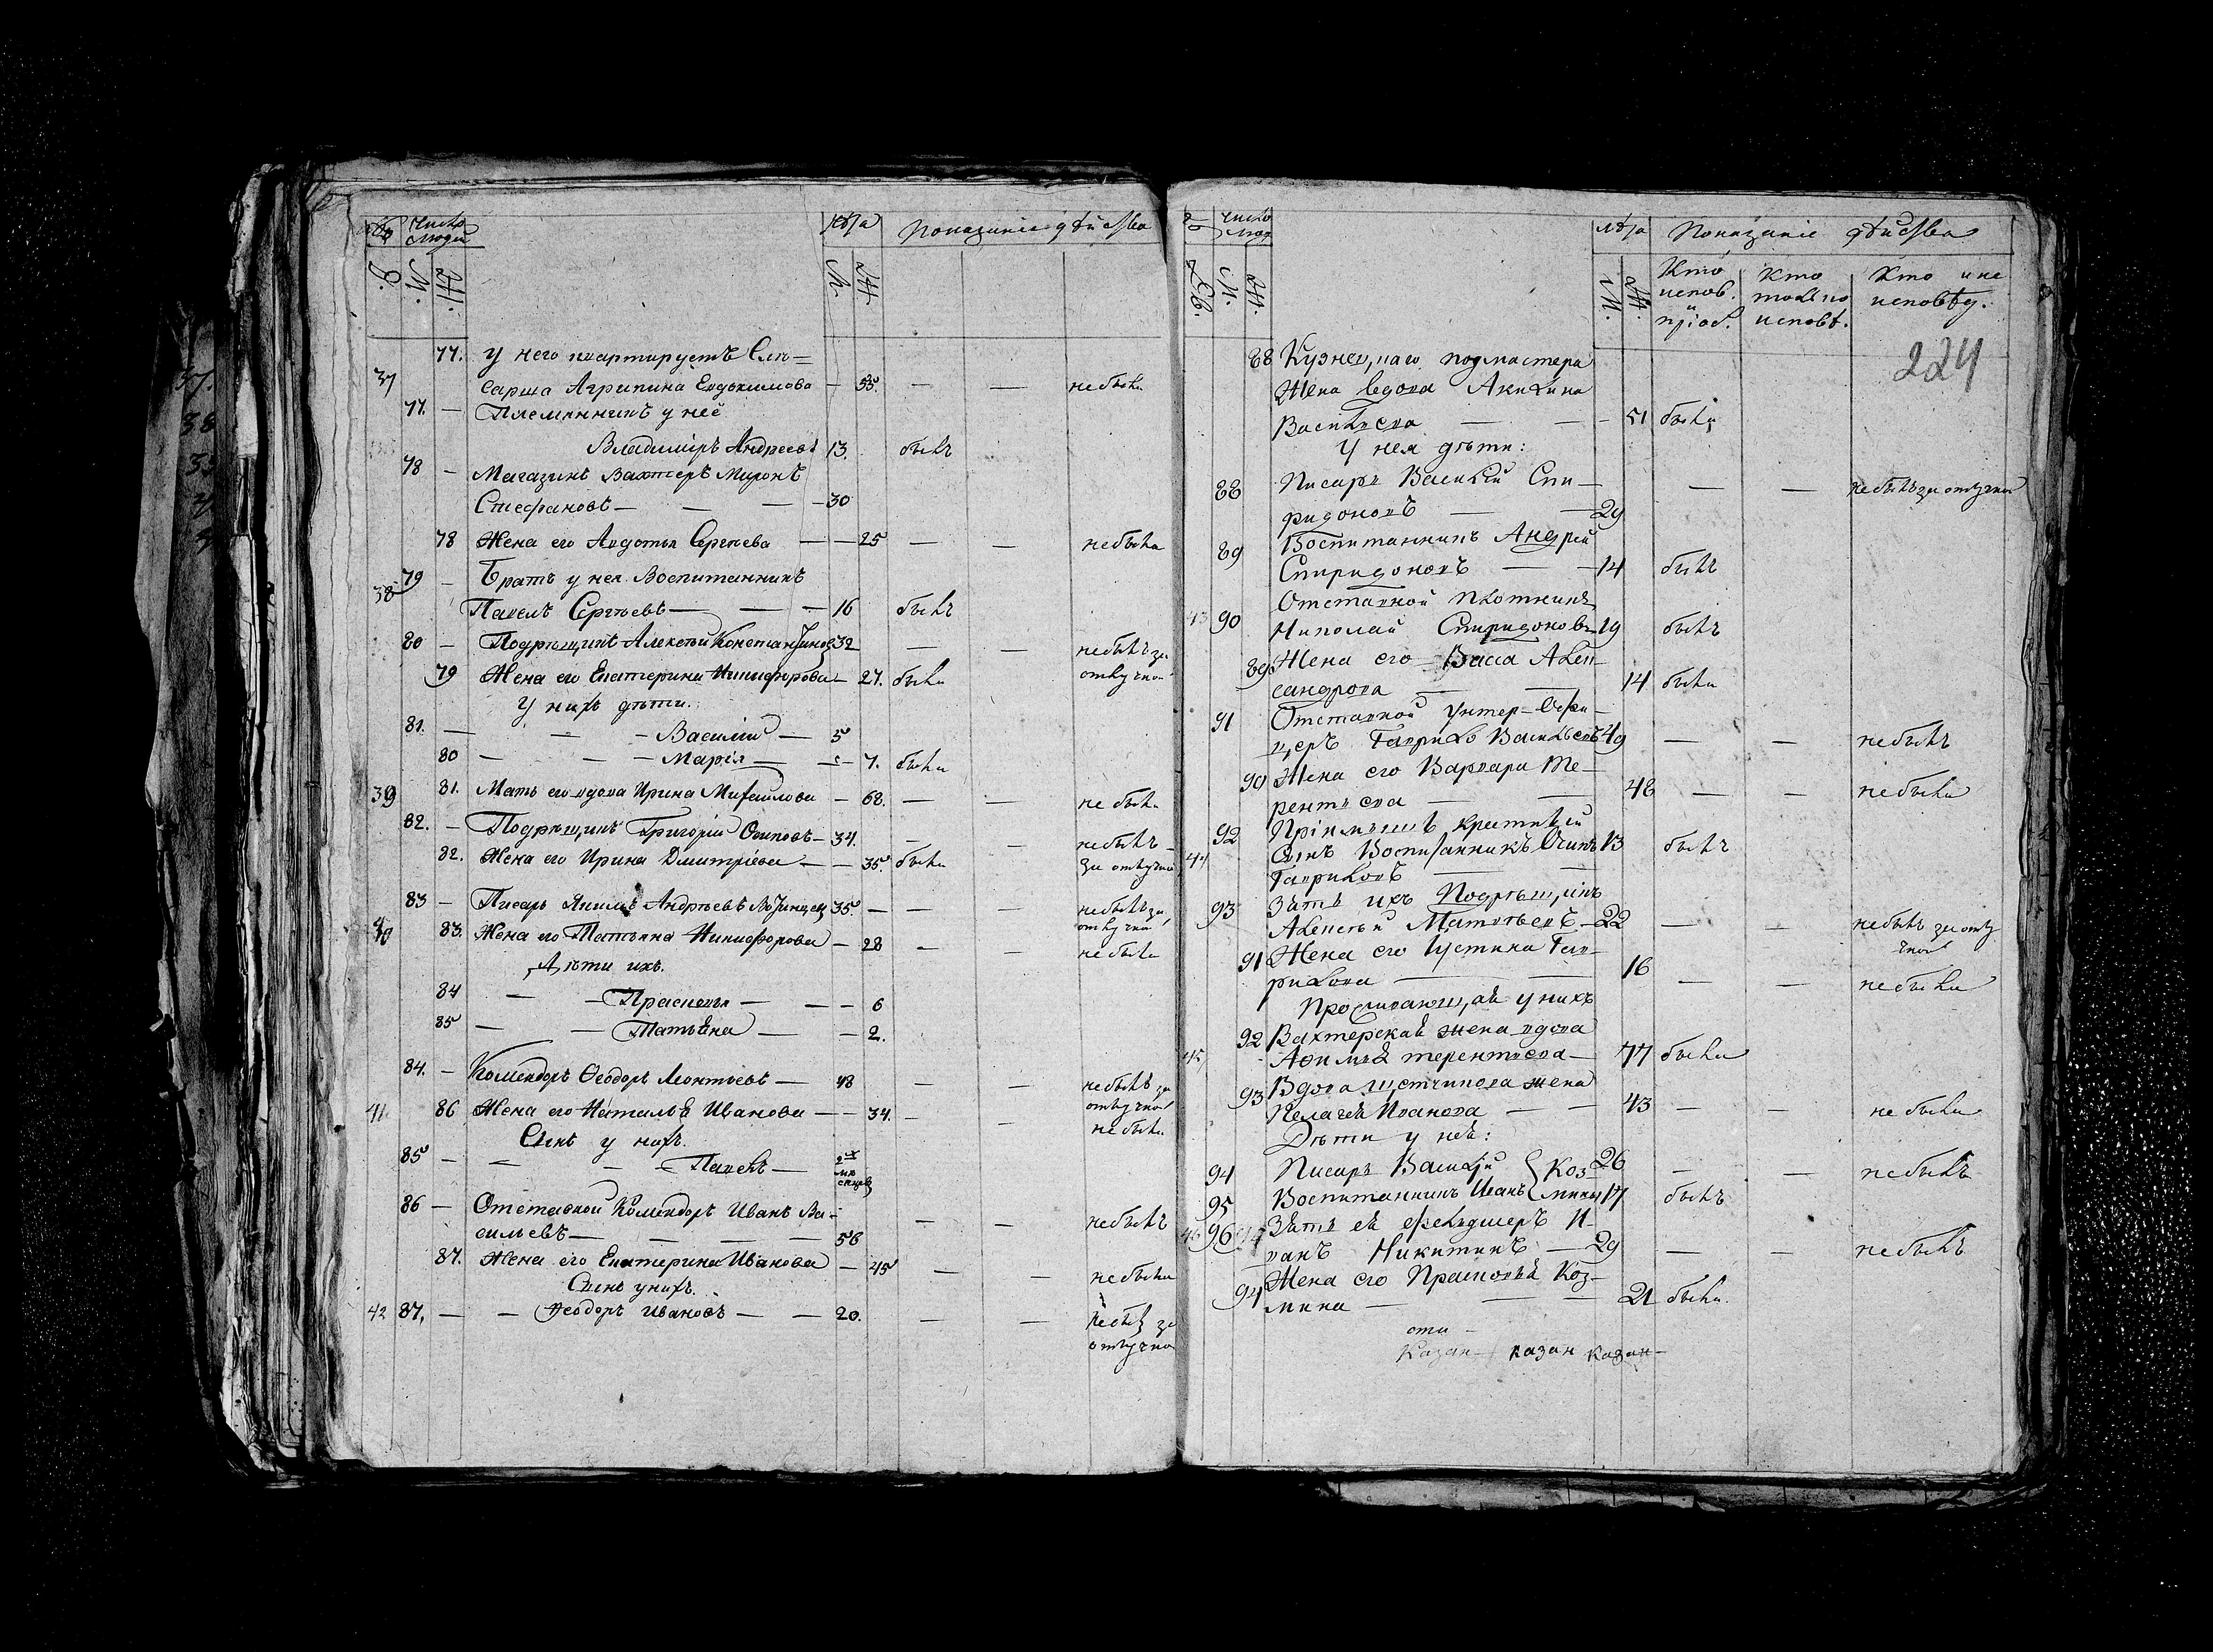 Число людей
лѣта
Показаніе дѣйства
М.
Ж.
М.
Ж.
77. у него квартируетъ Сле=
37
сарша Агрипина Евдокимова — 55. — — не была
77. — Племянникъ у неё
Владиміръ Андреевъ 13. былъ
78 — Магазинъ Вахтеръ Миронъ
Стефановъ — — — 30
78 Жена его Авдотья Сергѣева — — 25 — — не была
79 — Братъ у нея Воспитанникъ
38
Павелъ Сергѣевъ — — — 16 былъ
80 — Подрящикъ Алексѣй Константинов 32 — — не былъ за
79 Жена его Екатерина Никифорова — 27. была отлучкой
У нихъ дѣти.
81. — — — Василій — 5
80 — — — Марія — — 7. была
39 81. Мать его вдова Ирина Михайлова — 68. — — не была
82. — Подрящикъ Григорій Осиповъ — 34. — — не былъ
82. Жена его Ирина Дмитріева — — 35. была за отлучкой
83 — Писарь Андрѣевъ 35. — — не былъ за
отлучкой
40 83. Жена его Татьяна Никифорова — 28 — — не была
Дѣти ихъ.
84 — — Прасковья — — — 6
85 — — Татьяна — — 2.
84. — Комендоръ Ѳеодоръ Леонтьевъ — 48 — — не былъ за
отлучкой
41. 86 Жена его Наталья Иванова — — 34. — — не была
Сынъ у нихъ.
85 — — — Павелъ — 2х
мѣ
сяцев
86 — Отставной Комендоръ Иванъ Ва-
сильевъ — — — — 56 — — не былъ
87. Жена его Екатерина Иванова — 45 — — не была
Сынъ у нихъ.
42 87. — — Ѳеодоръ Ивановъ — — 20. — — не был за
отлучкой
Число люд
лѣта
Показаніе дѣйства
М.
Ж.
М.
Ж.
Кто испов. и пріоб.
Кто только исповѣ.
Кто и не исповѣд.
224
88 Кузнечнаго подмастера
Жена вдова Акилина
Васильева — — — 51 была
У нея дѣти:
88 Писарь Василій Спи —
ридоновъ — — 29 — — не былъ за отлучкой
89 Воспитанникъ Андрей
Спиридоновъ — — 14 былъ
Отставной плотникъ
43 90 Николай Спиридоновъ 19 былъ
89 Жена его Васса Алек-
сандрова — — 14 была
91 Отставной унтер-Офи-
церъ Гаврилъ Васильевъ 49 — — не былъ
90 Жена его Варвара Те-
рентьева — — 48 — — не была
92 Пріимышъ крестный
44 Сынъ Воспитанникъ Осипъ 13 былъ
Гавриловъ — —
93 Зять ихъ Подрящикъ
Алексѣй Матвѣевъ — 22 — — не былъ за отлу
чкой
91 Жена его Устинья Гав-
рилова — — 16 — — не была
Проживающая у нихъ
92 Вахтерская жена вдова
45 Афимья терентьева — 77 была
93 Вдова жена
Пелагея Иванова — — 43 — — не была
Дѣти у нея:
94 Писарь Василій { Коз- 26 — — не былъ
95 Воспитанникъ Иванъ { мины 17 былъ
46 96 Зять ея фельдшеръ И-
ванъ Никитинъ — 29 — — не былъ
94 Жена его Прасковья Коз-
мина — — — 21 была.
Казан- казан казан-